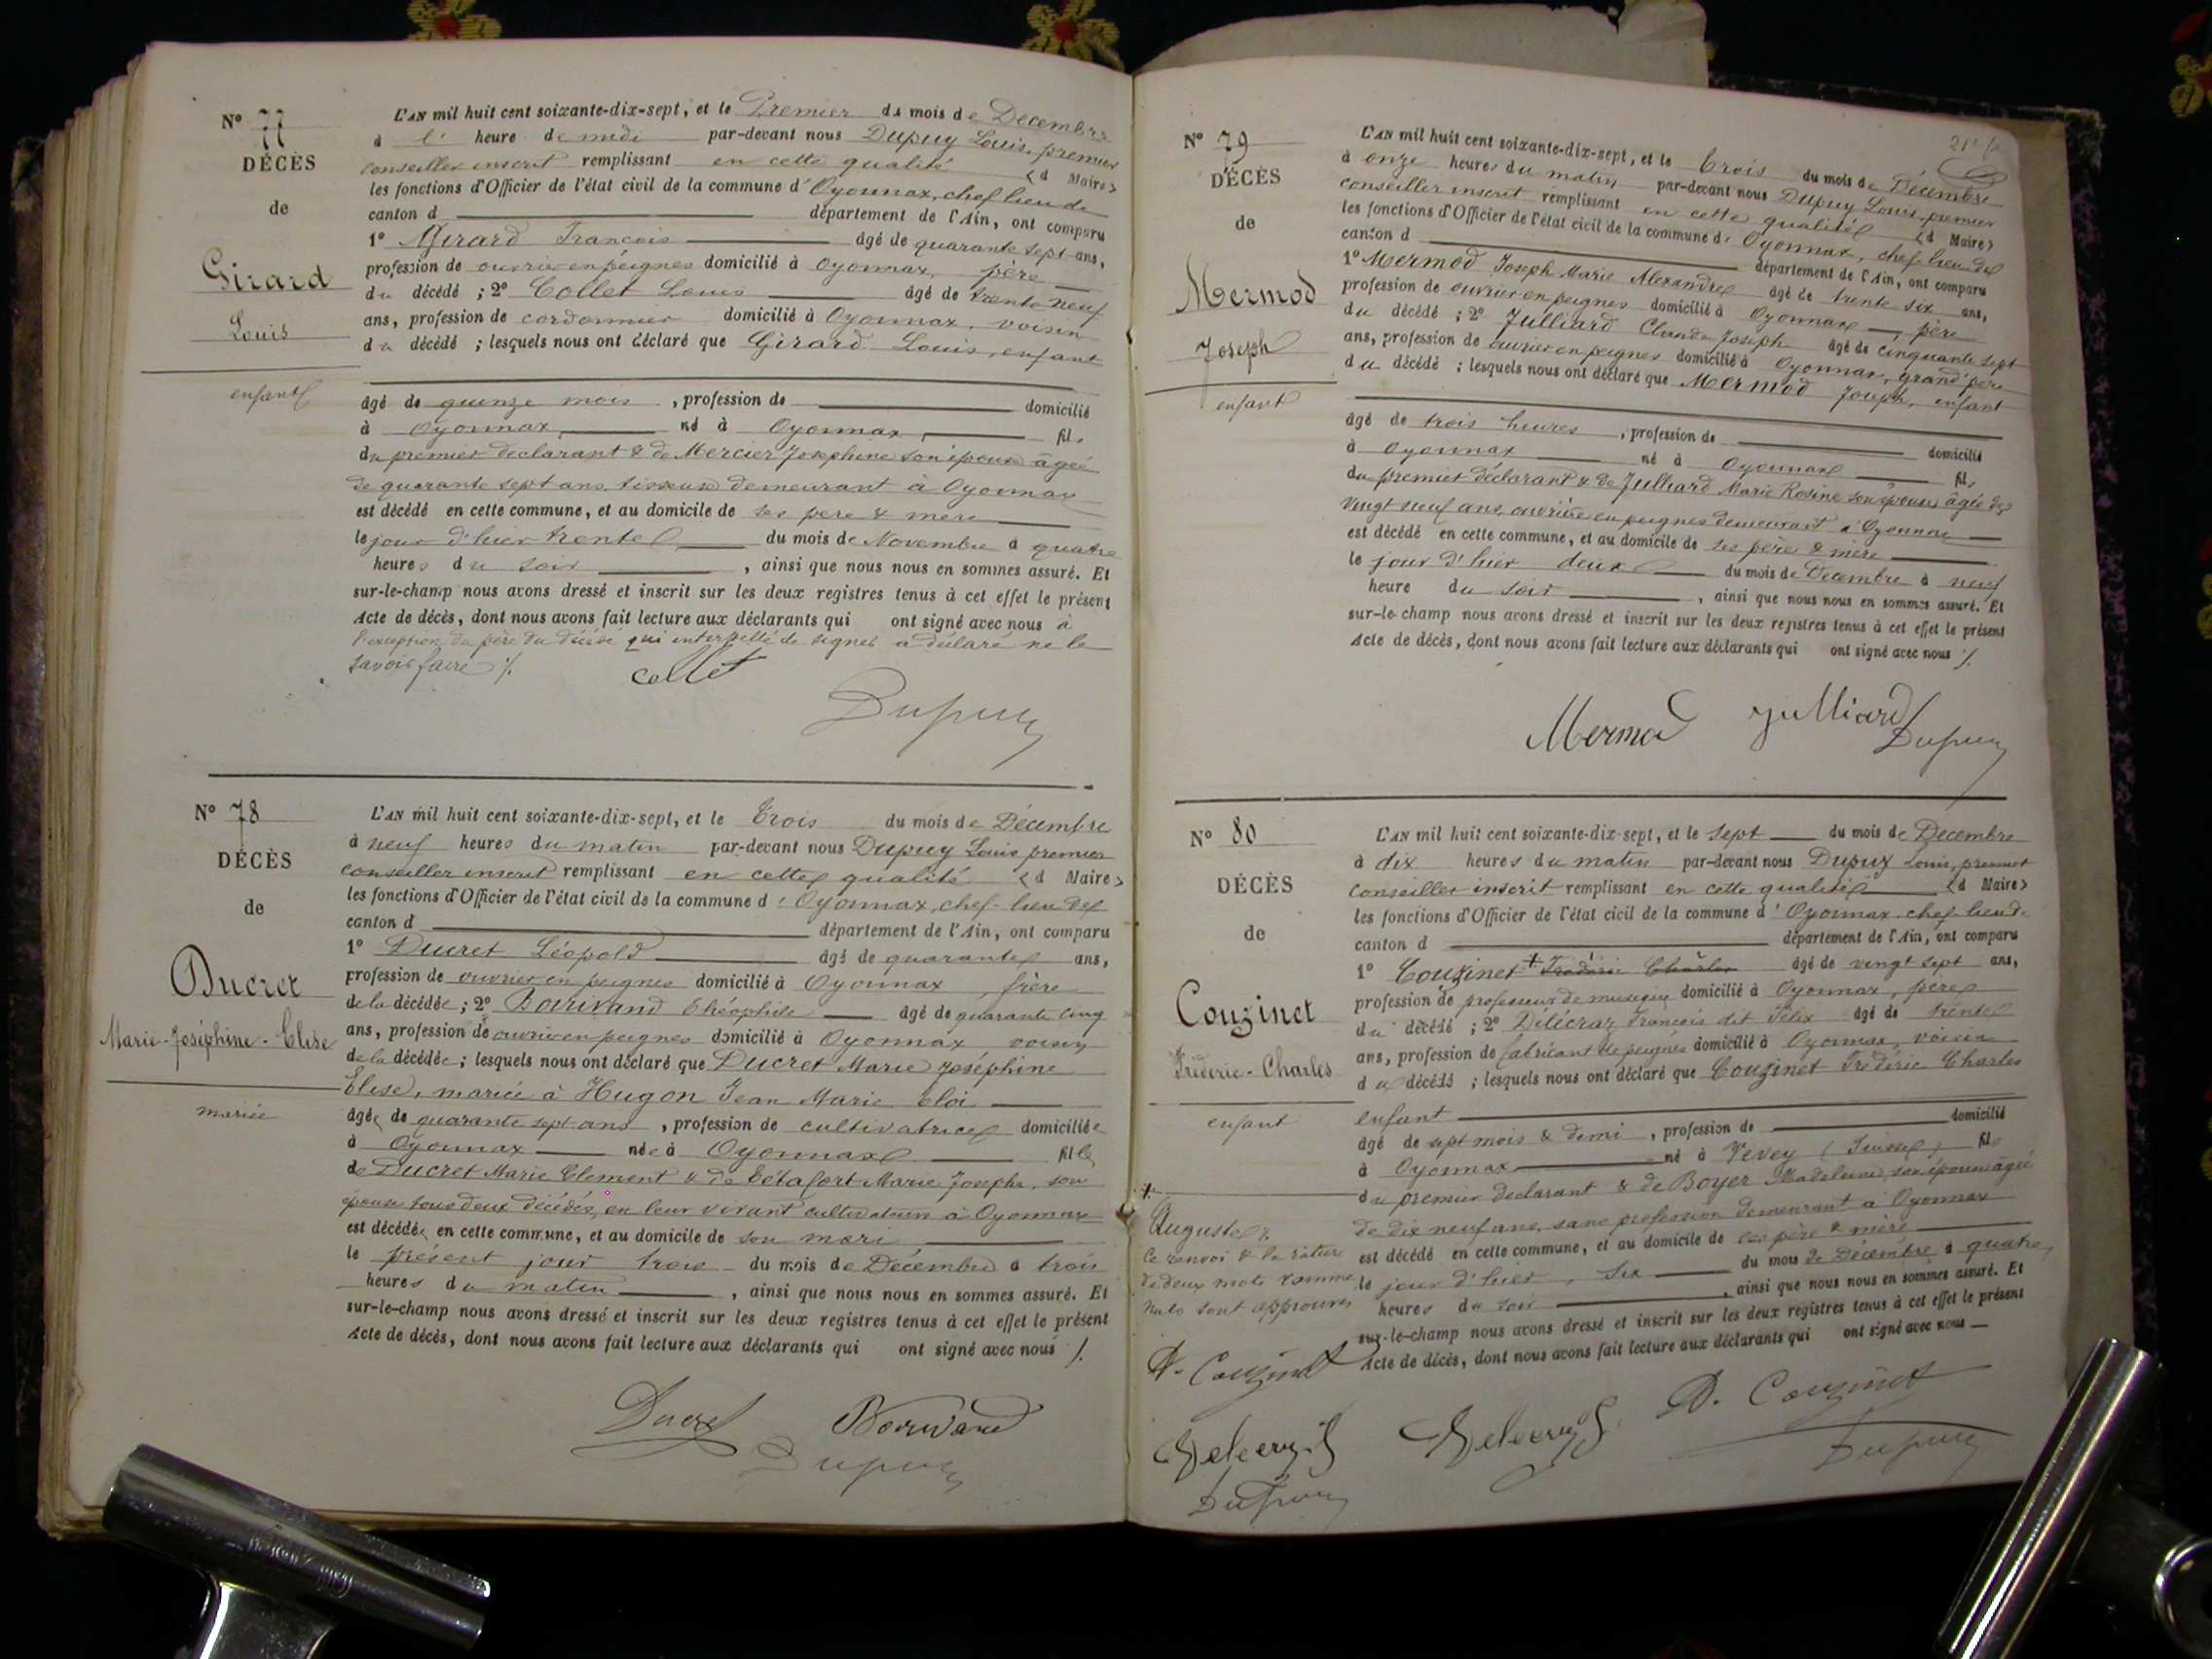 N° 77
DÉCÈS
de
Girard
Louis
enfant
L'AN mil huit cent soixante-dix-sept, et le Premier du mois de Décembre
à l' heure de midi par-devant nous Dupuy Louis, premier
conseiller inscrit remplissant en cette qualité (d Maire)
les fonctions d'Officier de l'état civil de la commune d'Oyonnax, chef lieu de
canton d département de l'Ain, ont comparu
1° Girard François âgé de quarante sept ans,
profession de ouvrier en peignes domicilié à Oyonnax, père
du décédé ; 2° Collet Louis âgé de trente neuf
ans, profession de cordonnier domicilié à Oyonnax, voisin
du décédé ; lesquels nous ont déclaré que Girard Louis, enfant
âgé de quinze mois , profession de domicilié
à Oyonnax, né à Oyonnax, fils
du premier déclarant & de Mercier Joséphine son épouse âgée
de quarante sept ans, tisseuse demeurant à Oyonnax
est décédé en cette commune, et au domicile de ses père & mère
le jour d'hier trente du mois de Novembre à quatre
heures du soir , ainsi que nous nous en sommes assuré. Et
sur-le-champ nous avons dressé et inscrit sur les deux registres tenus à cet effet le présent
Acte de décès, dont nous avons fait lecture aux déclarants qui ont signé avec nous à
l'exception du père du décédé qui interpellé de signer a déclaré ne le
savoir faire ./.
collet
Dupuy
N° 78
DÉCÈS
de
Ducret
Marie-Joséphine-Elise
mariée
L'AN mil huit cent soixante-dix-sept, et le Trois du mois de Décembre
à neuf heures du matin par-devant nous Dupuy Louis premier
conseiller inscrit remplissant en cette qualité (d Maire)
les fonctions d'Officier de l'état civil de la commune d'Oyonnax, chef-lieu de
canton d département de l'Ain, ont comparu
1° Ducret Léopold âgé de quarante ans,
profession de ouvrier en peignes domicilié à Oyonnax, frère
de la décédée ; 2° Bourivand Théophile âgé de quarante cinq
ans, profession de ouvrier en peignes domicilié à Oyonnax voisin
de la décédée ; lesquels nous ont déclaré que Ducret Marie Joséphine
Elise, mariée à Hugon Jean Marie Eloi
âgée de quarante sept ans , profession de cultivatrice domiciliée
à Oyonnax née à Oyonnax fille
de Ducret Marie Clement & de Tétafort Marie Josephe, son
épouse tous deux décédés, en leur vivant cultivateurs à Oyonnax
est décédée en cette commune, et au domicile de son mari
le présent jour trois du mois de Décembre à trois
heures du matin , ainsi que nous nous en sommes assuré. Et
sur-le-champ nous avons dressé et inscrit sur les deux registres tenus à cet effet le présent
Acte de décès, dont nous avons fait lecture aux déclarants qui ont signé avec nous ./.
Ducret
Dupuy
N° 79
DÉCÈS
de
Mermod
Joseph
enfant
L'AN mil huit cent soixante-dix-sept, et le Trois du mois de Décembre
à onze heures du matin par-devant nous Dupuy Louis, premier
conseiller inscrit remplissant en cette qualité (d Maire)
les fonctions d'Officier de l'état civil de la commune d'Oyonnax, chef-lieu de
canton d département de l'Ain, ont comparu
1° Mermod Joseph Marie Alexandre âgé de trente six ans,
profession de ouvrier en peignes domicilié à Oyonnax, père
du décédé ; 2° Julliard Claude Joseph âgé de cinquante sept
ans, profession de ouvrier en peignes domicilié à Oyonnax, grand'père
du décédé ; lesquels nous ont déclaré que Mermod Joseph, enfant
âgé de trois heures , profession de domicilié
à Oyonnax né à Oyonnax fils
du premier déclarant & de Julliard Marie Rosine son épouse, âgée de
vingt neuf ans, ouvrière en peignes demeurant à Oyonnax
est décédé en cette commune, et au domicile de ses père & mère
le jour d'hier deux du mois de Décembre à neuf
heure du soir , ainsi que nous nous en sommes assuré. Et
sur-le-champ nous avons dressé et inscrit sur les deux registres tenus à cet effet le présent
Acte de décès, dont nous avons fait lecture aux déclarants qui ont signé avec nous ./.
Mermod Julliard
Dupuy
N° 80
DÉCÈS
de
Couzinet
Frédéric-Charles
enfant
L'AN mil huit cent soixante-dix-sept, et le sept du mois de Décembre
à dix heures du matin par-devant nous Dupuy Louis, premier
conseiller inscrit remplissant en cette qualité (d Maire)
les fonctions d'Officier de l'état civil de la commune d'Oyonnax, chef-lieu de
canton d département de l'Ain, ont comparu
1° Couzinet + Frédéric Charles âgé de vingt sept ans,
profession de professeur de musique domicilié à Oyonnax, père
du décédé ; 2° Délécraz François dit Félix âgé de trente
ans, profession de fabricant de peignes domicilié à Oyonnax, voisin
du décédé ; lesquels nous ont déclaré que Couzinet Frédéric Charles
enfant
âgé de sept mois & demi , profession de domicilié
à Oyonnax né à Vevey (Suisse) fils
du premier déclarant & de Boyer Madeleine, son épouse âgée
de dix neuf ans, sans profession demeurant à Oyonnax
est décédé en cette commune, et au domicile de ses père & mère
le jour d'hier, six du mois de Décembre à quatre
heures du soir , ainsi que nous nous en sommes assuré. Et
sur-le-champ nous avons dressé et inscrit sur les deux registres tenus à cet effet le présent
Acte de décès, dont nous avons fait lecture aux déclarants qui ont signé avec nous
+
Auguste ./.
Ce renvoi & la rature
de deux mots comme
nuls sont approuvés
A. Couzinet
Delecraz f
Dupuy
Delecraz f
A. Couzinet
Dupuy